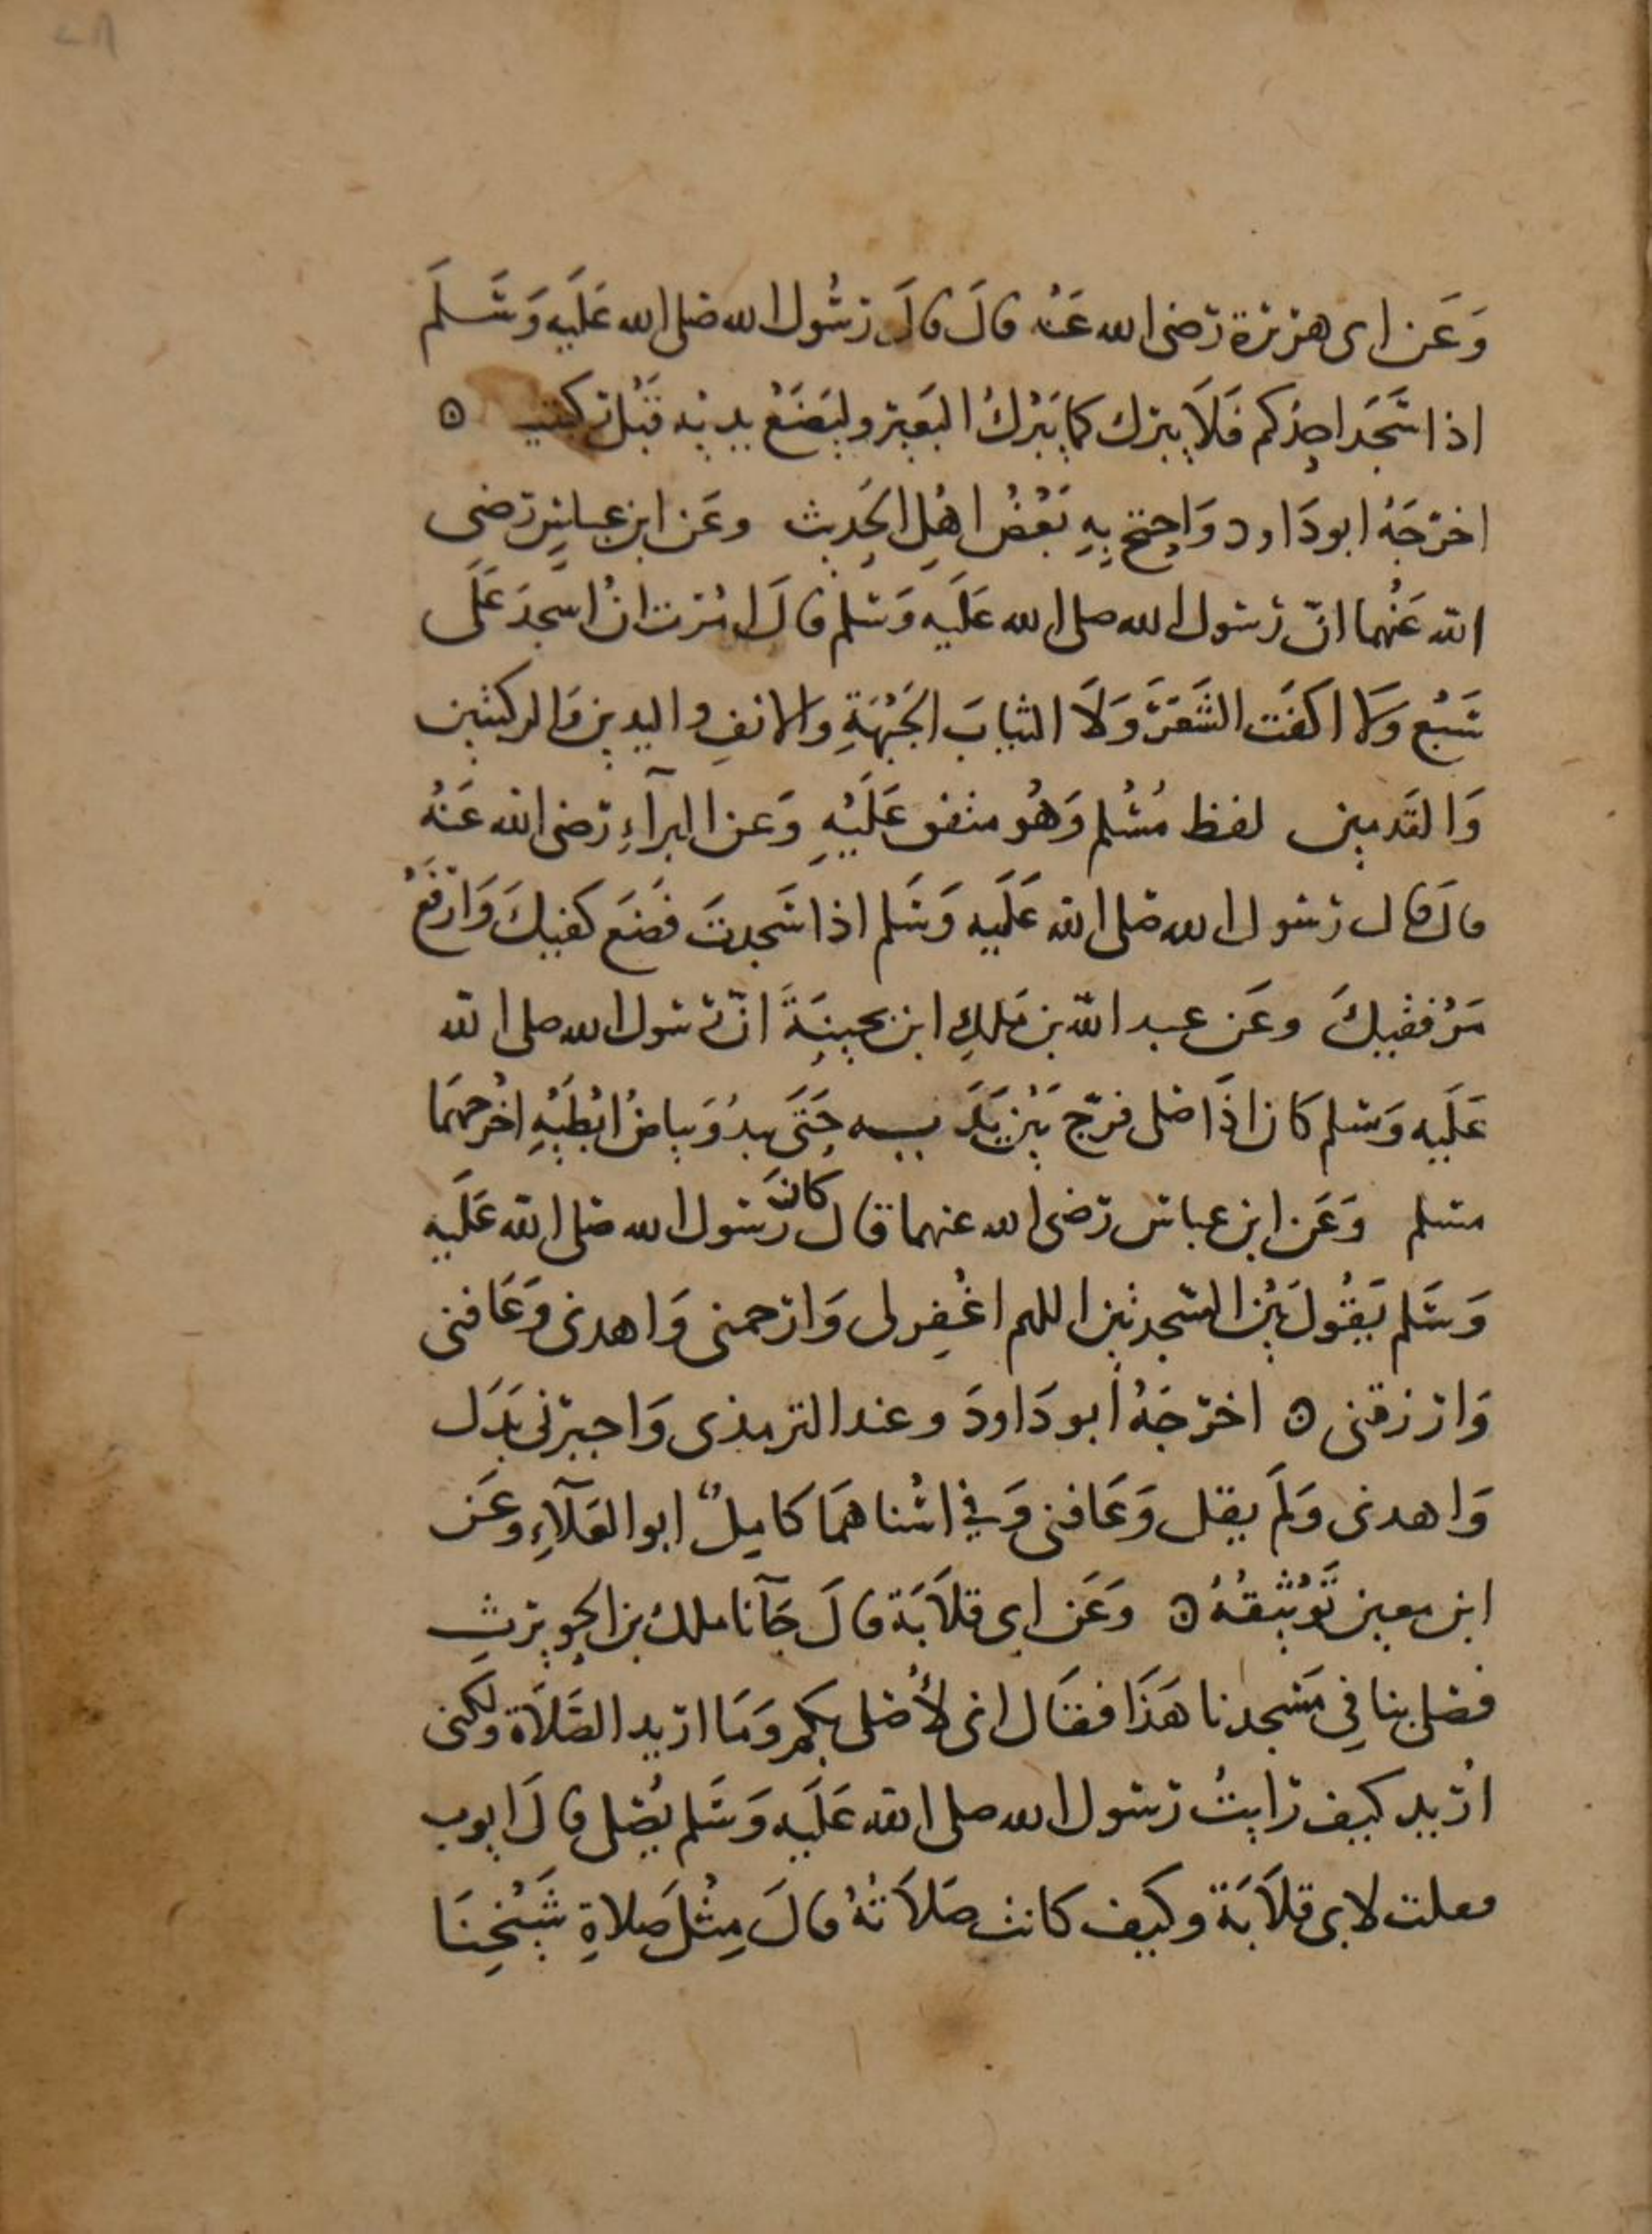 وَعَن ابى هريرة رضى الله عَنْه قالَ قالَ رسُول الله صلى الله عَلَيه وَسَلَم
اذا سَجَد احِدُكم فَلَا يبرك كما يَبْرُكُ البَعِير وليَضَعْ يديْه قَبْل ركبتيه ۞
اخرَجَهُ ابو دَاود وَاحِتج بِهِ بَعْضُ اهْلِ الحَدِيث وعَن ابن عباسٍ رَضى
الله عَنْهما انّ رَسول الله صلى الله عَلَيه وَسَلم قالَ امُرت انْ اسجدَ عَلَى
سَبْع وَلا اكفَت الشَعَرَ وَلَا الثيابَ الجَبْهَةِ والانفِ واليدين وَالركبتين
وَالقَدمين لفظ مُسْلم وَهُو متفق عَلَيْهِ وَعن البرآءِ رَضى الله عَنهُ
قالَ قال رَسول الله صَلى الله عَلَيه وَسَلم اذا سَجدتَ فضَع كفيكَ وَارْفَعْ
مَرْفقيكَ وعَن عبد الله بن مَلِكِ ابن بحينَةَ انّ رَسول الله صلى الله
عَلَيه وَسَلم كان اذَا صَلى فرّج بَيْن يَدَيه حَتَى يبدُوَ بياضُ ابْطَيْهِ اخْرجهمَا
مسلم وَعَن ابن عباس رَضى الله عنهما قال كانَ رَسول الله صَلى الله عَلَيه
وَسَلم يَقُولَ بَيْن السَجدتين اللهم اغْفِر لى وَارْحمنى وَاهدنى وَعَافنى
وَارزقنى ۞ اخرَجَهُ ابو دَاودَ وعند الترمذى وَاجبرنى بَدَل
وَاهدنى وَلَم يقل وَعَافنى وَفي اسْناهمَا كامِلٌ ابو العَلَآءِ وعَن
ابن معين تَوْثيقهُ ۞ وَعَن ابى قلَابَة قالَ جَآنا ملك بن الحُويرث
فصَلى بنا فِي مَسْجدنا هَذَا فقَال انى لأُصَلى بكم وَمَا اريد الصَّلَاة ولكنى
ارُيد كيف رَايتُ رَسول الله صلى الله عَلَيه وَسَلم يُصَلى قالَ ايوب
فقلت لابى قلَابَة وكَيف كانت صَلَاتهُ قالَ مِثْلَ صَلاةِ شَيْخِنَا